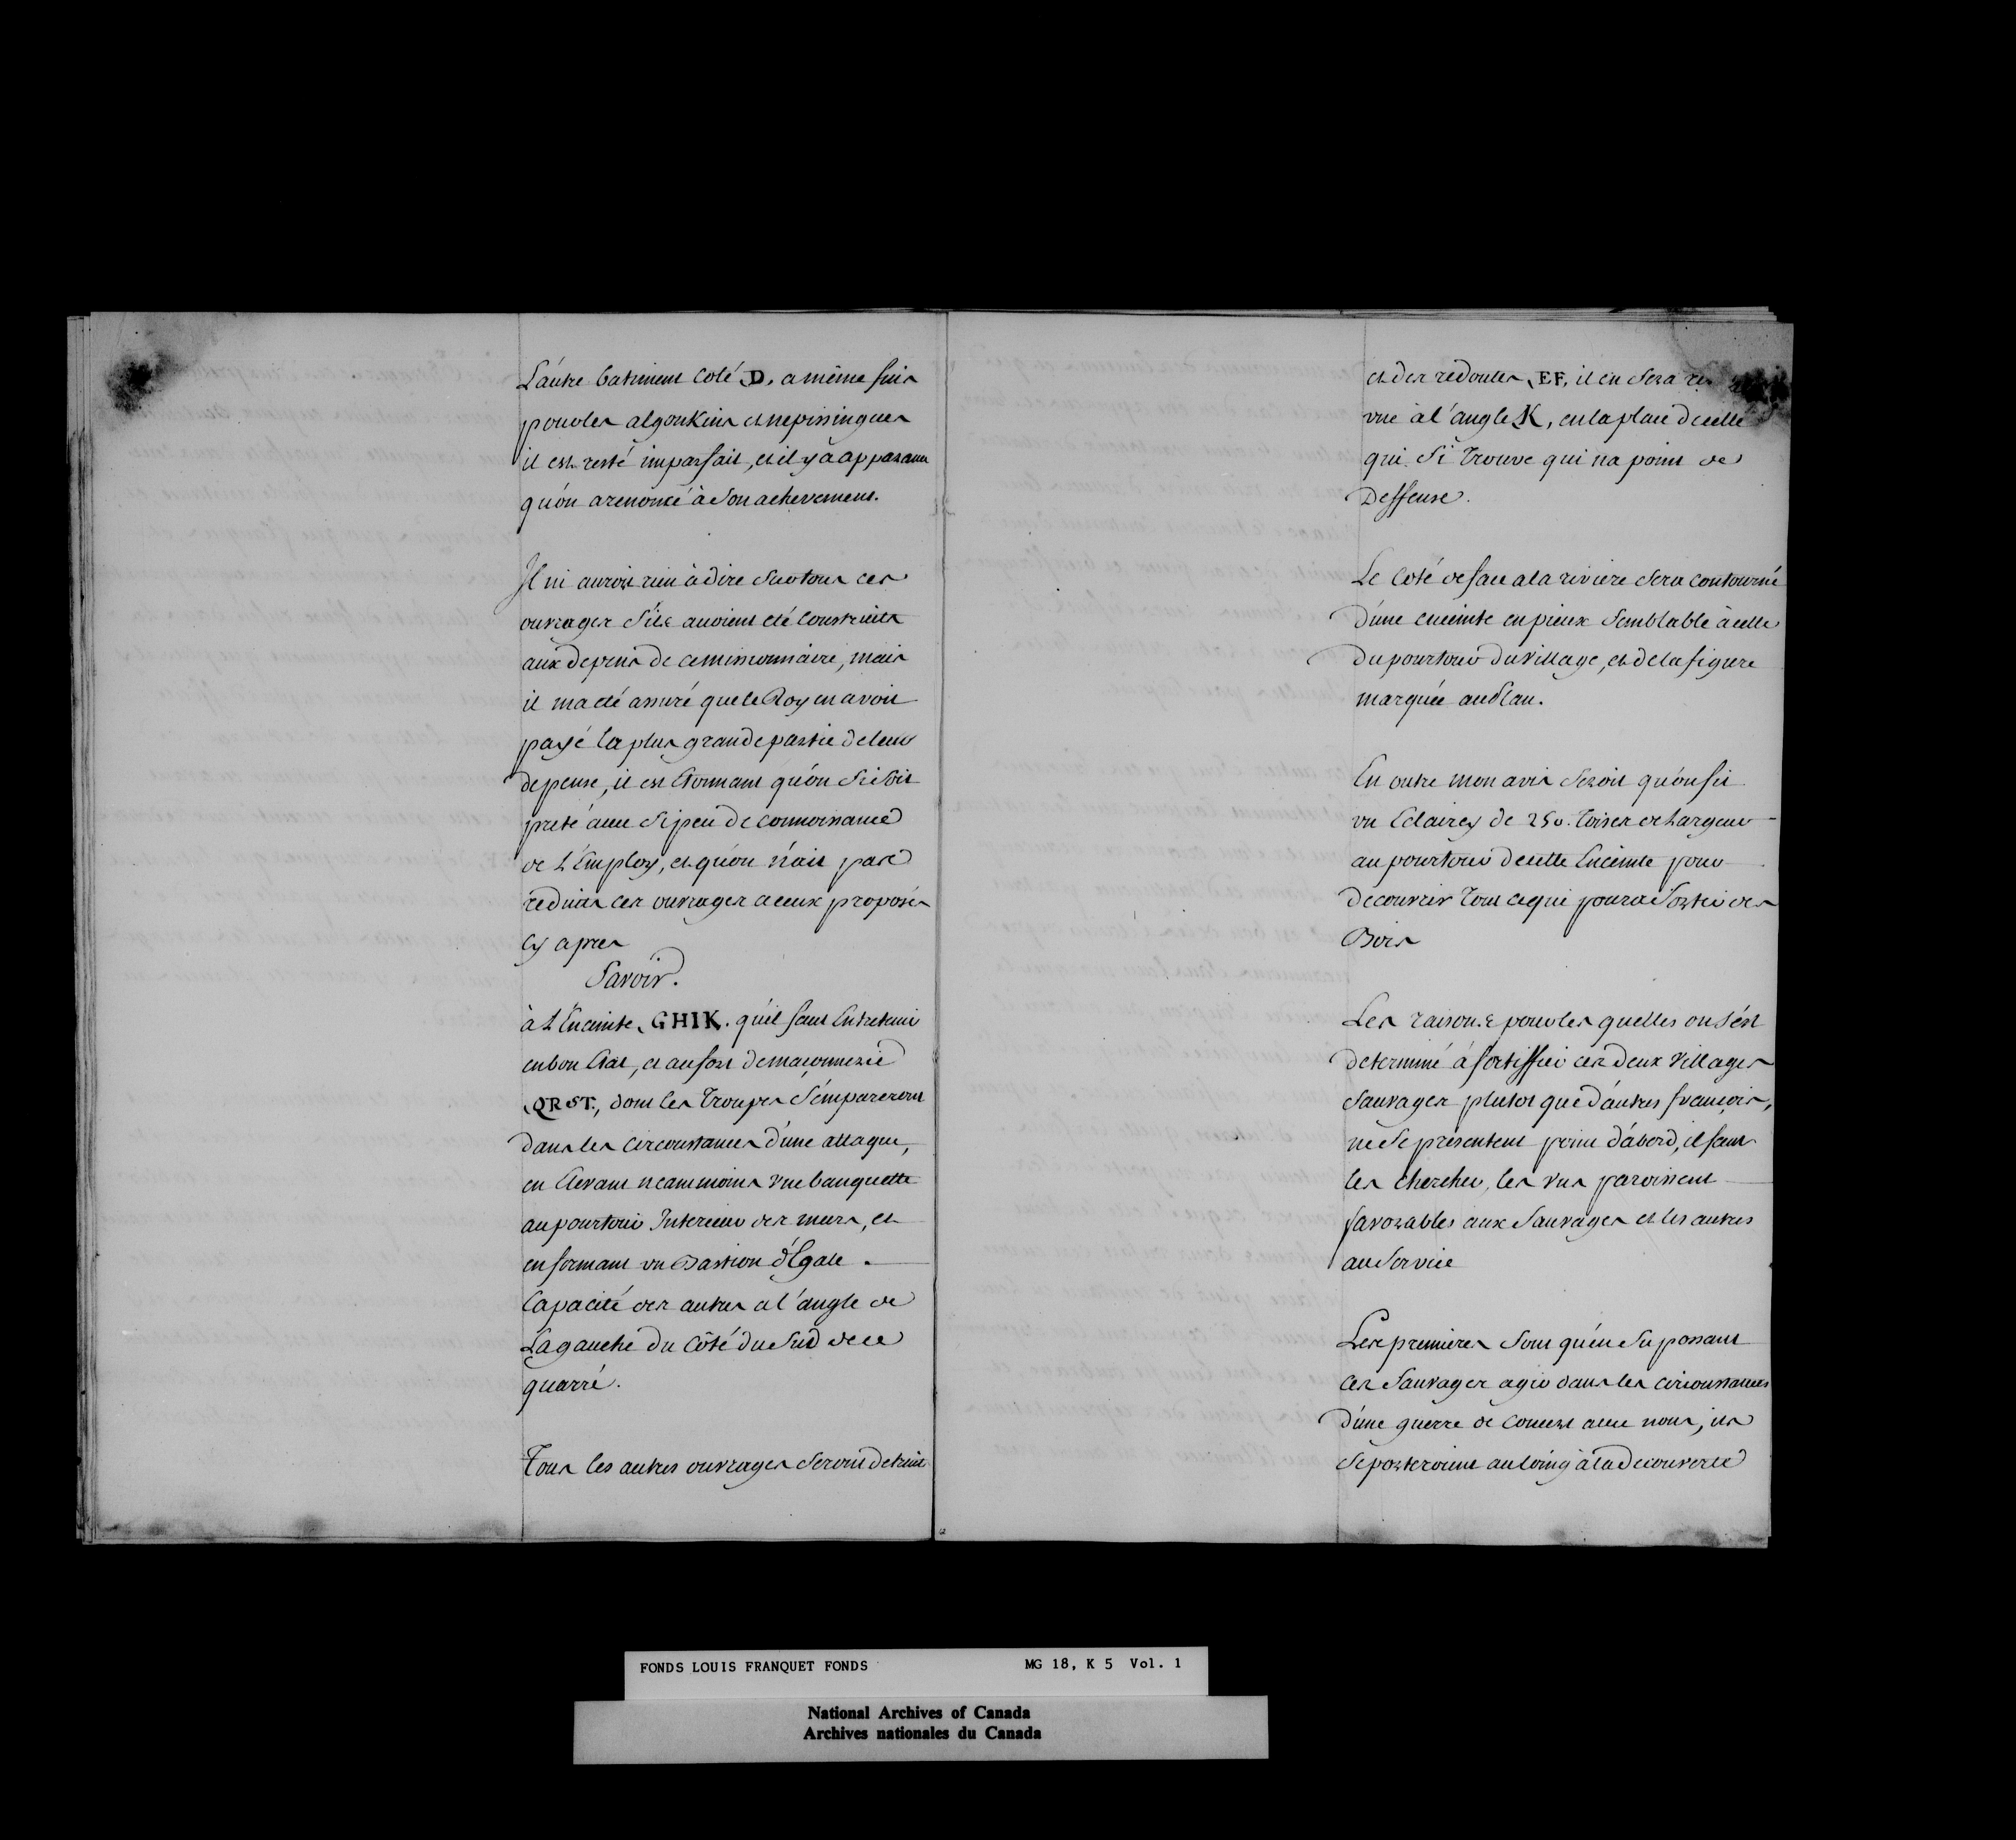 L'autre batiment coté D. a même fins
pour les algonKins et nepissingues
il est resté imparfait, et il y a apparance
qu'on a renoncé à son achevement.
Il ni auroit rien à dire sur tous ces
ouvrages s'ils avoient eté construits
aux depens de ce missionnaire, mais
il m'a eté assuré que le Roy en avoit
payé la plus grande partie de leur
depense, il est Etonnant qu'on s'i soit
preté avec si peu de connoissance
de l'Employ, et qu'on n'ait pas
reduits ces ouvrages a ceux proposés
cy apres
Savoir.
à l'Enceinte GHIK. qu'il faut Entretenir
en bon Etat, et au fort de maçonnerie
QRST., dont les Troupes s'empareront
dans les circonstances d'une attaque,
en Elevant neammoins une banquette
au pourtour Interieur des murs, et
en formant un Bastion d'Egale
Capacité des autres a l'angle de
La gauche du Côté du Sud de ce
quarré.
Tous les autres ouvrages seront detruits
et des redoutes EF, il en sera
une à l'angle K, en la place de celle
qui s'i trouve qui n'a point de
Deffense.
Le Coté de face a la riviere sera contourné
D'une enceinte en pieux semblable à celle
Du pourtour du Village, et de la figure
marquée au Plan.
En outre mon avis seroit qu'on fit
un Eclaircy de 250. Toises de Largeur
au pourtour de cette Enceinte pour
decouvrir tout ce qui poura sortir des
Bois
Les raisons pour les quelles on s'est
determiné à fortiffier ces deux Villages
Sauvages plutot que d'autres françois,
ne se présentent point d'abord, il faut
les chercher, les uns paroissent
favorables aux Sauvages et les autres
au Service
Les premieres sont qu'en suposant
ces Sauvages agir dans les circonstances
d'une guerre de concert avec nous, ils
se porteroient au loing à la decouverte
FONDS LOUIS FRANQUET FONDS MG 18, K 5 Vol. 1
National Archives of Canada
Archives nationales du Canada